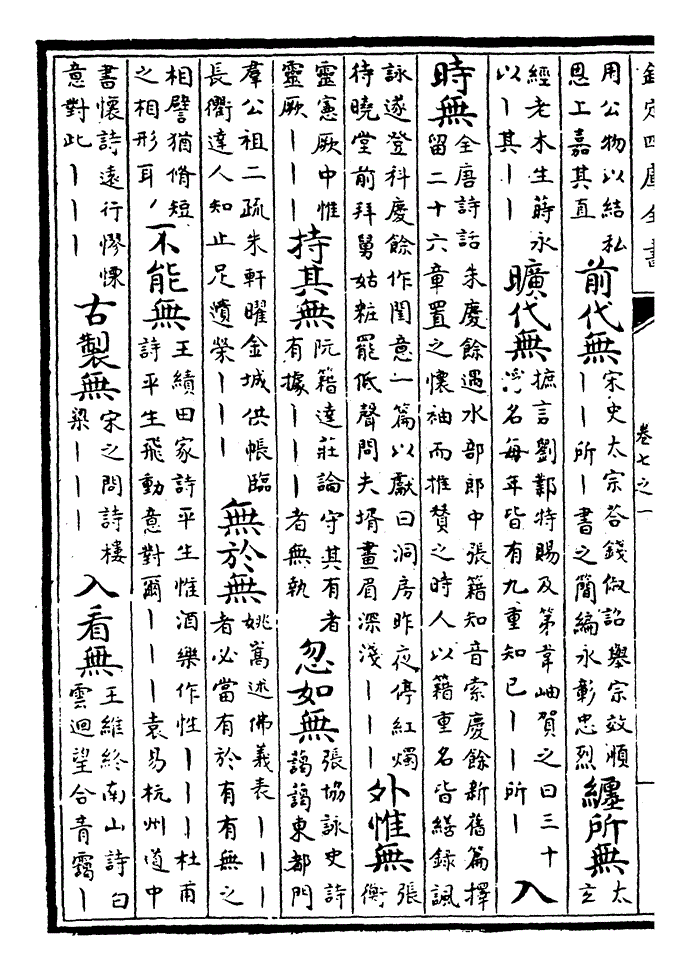 欽定四庫全書 卷七之一
用公物以結私恩工嘉其直 前代無 宋史太宗答錢俶詔舉宗效順丨丨所丨書之簡編永彰忠烈 纏所無 太玄
經老木生蒔永以丨其丨丨 曠代無 摭言劉鄴特賜及第韋岫賀之曰三十浮名每年皆有九重知己丨丨所丨 入
時無 全唐詩話朱慶餘遇水部郎中張籍知音索慶餘新舊篇擇留二十六章置之懷袖而推贊之時人以籍重名皆繕錄諷
詠遂登科慶餘作閨意一篇以獻曰洞房昨夜停紅燭待曉堂前拜舅姑粧罷低聲問夫壻畫眉深淺丨丨丨 外惟無 張衡
靈憲厥中惟靈厥丨丨丨 持其無 阮籍達莊論守其有者有據丨丨丨者無執 忽如無 張協詠史詩藹藹東都門
羣公祖二疏朱軒曜金城供帳臨長衢達人知止足遺榮丨丨丨 無於無 姚嵩述佛義表丨丨丨者必當有於有有無之
相譬猶脩短之相形耳 不能無 王績田家詩平生惟酒樂作性丨丨丨杜甫詩平生飛動意對爾丨丨丨袁易杭州道中
書懷詩遠行憀慄意對此丨丨丨 古製無 宋之問詩樓梁丨丨丨 入看無 王維終南山詩白雲迴望合青靄丨